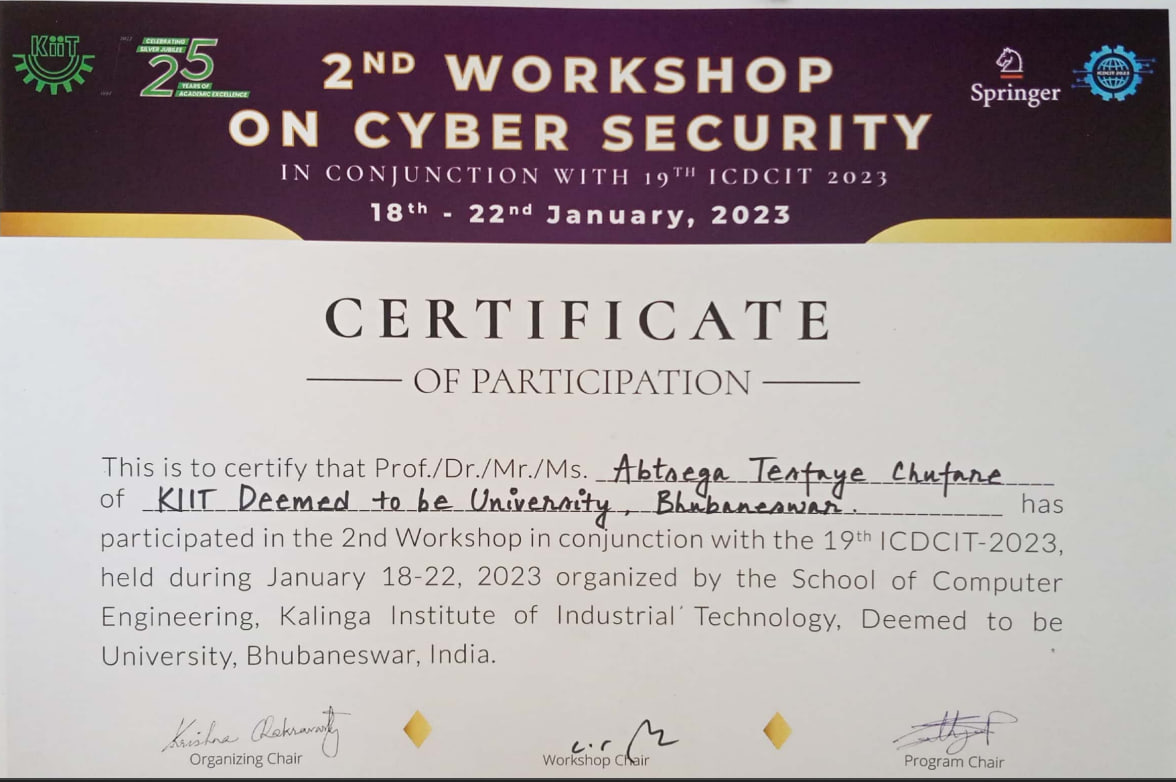 KiiT
CELEBRATING
SILVER JUBILEE
25
YEARS OF
ACADEMIC EXCELLENCE
2ND WORKSHOP
ON CYBER SECURITY
IN CONJUNCTION WITH 19TH ICDCIT 2023
18th - 22nd January, 2023
Springer
ICDCIT 2023
CERTIFICATE
OF PARTICIPATION
This is to certify that Prof./Dr./Mr./Ms. Abtsega Tesfaye Chufare
of KIIT Deemed to be University, Bhubaneswar. has
participated in the 2nd Workshop in conjunction with the 19th ICDCIT-2023,
held during January 18-22, 2023 organized by the School of Computer
Engineering, Kalinga Institute of Industrial Technology, Deemed to be
University, Bhubaneswar, India.
Krishna Chakravarty
Organizing Chair
Workshop Chair
Program Chair